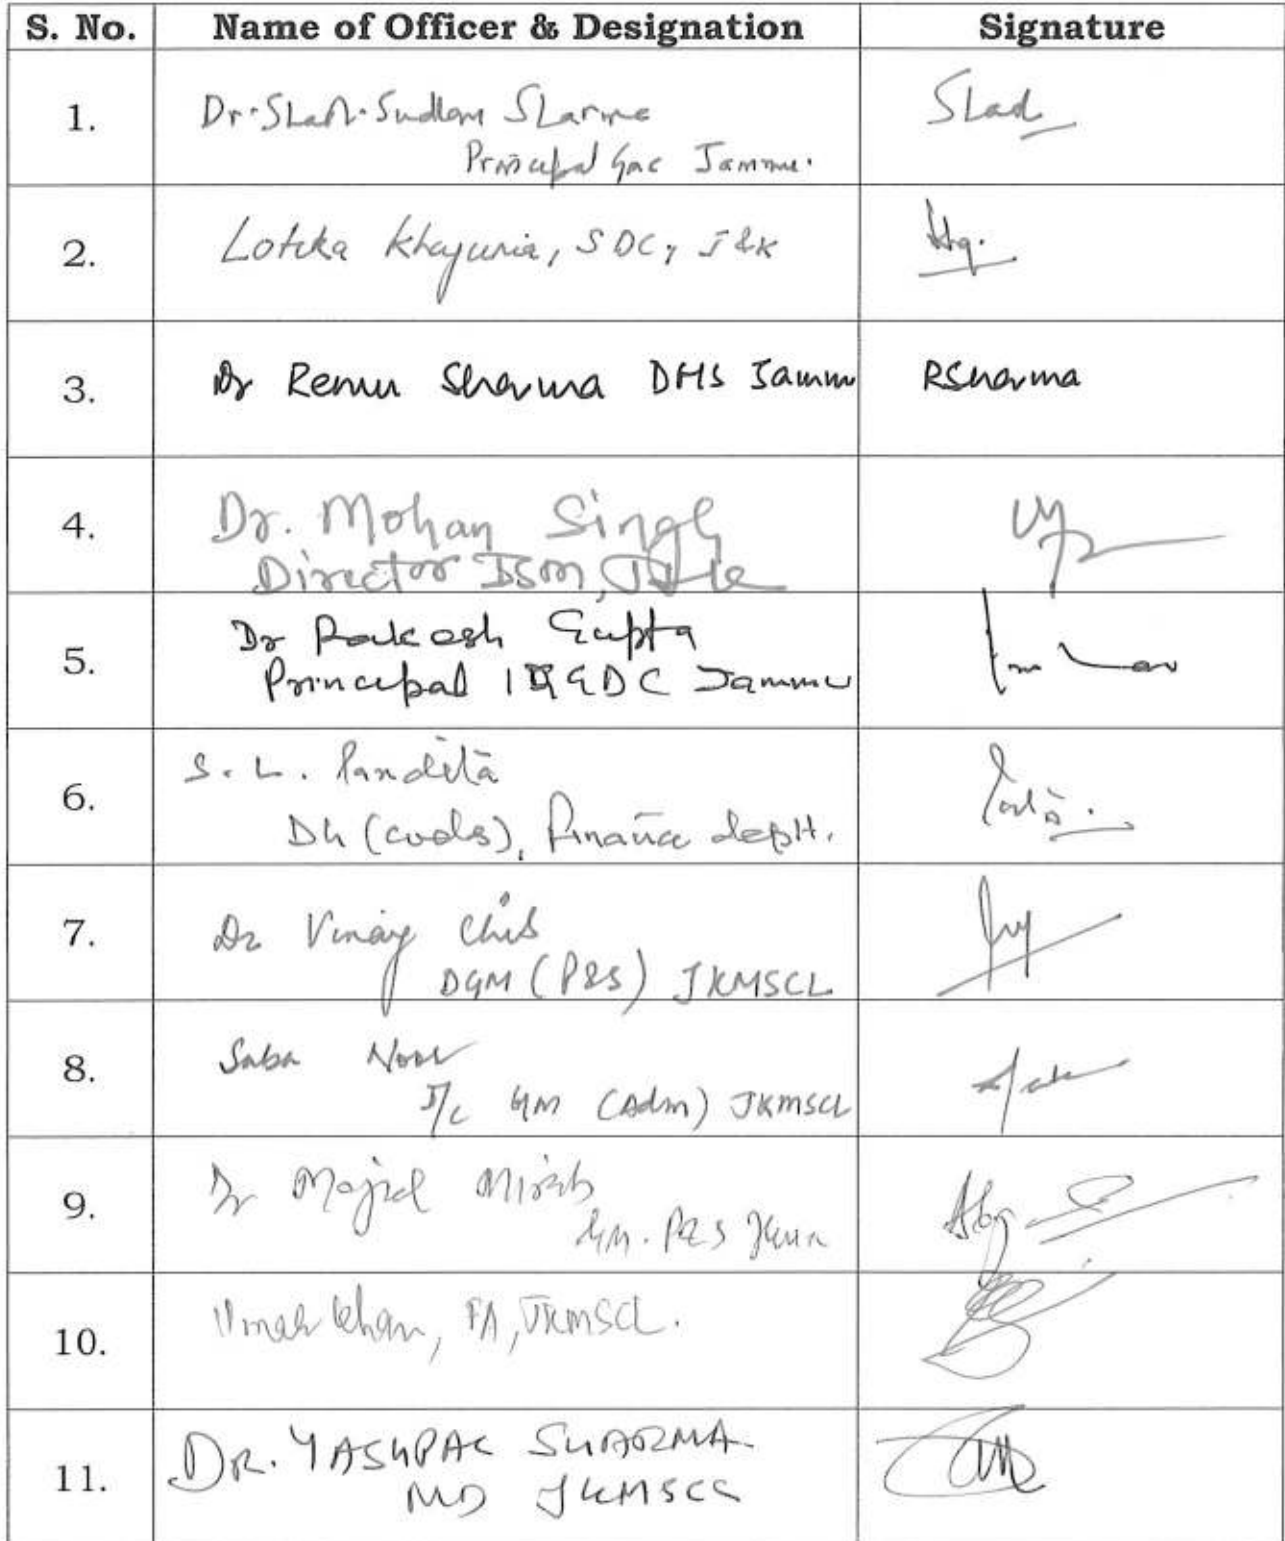 S. No. Name of Officer & Designation Signature
1. Dr. Shashi Sudhan Sharma
Principal GMC Jammu.
2. Lotika Khajuria, SDC, J&K
3. Dr Renu Sharma DHS Jammu RSharma
4. Dr. Mohan Singh
Director ISM, J&K
5. Dr Rakesh Gupta
Principal IGGDC Jammu
6. S. L. Pandita
Dir (codes), Finance deptt.
7. Dr Vinay Chib
DGM (P&S) JKMSCL
8. Saba Noor
I/c GM (Adm) JKMSCL
9. Dr Majid Mirab
GM. P&S
10. Umar Khan, FA, JKMSCL.
11. DR. YASHPAL SHARMA
MD JKMSCL